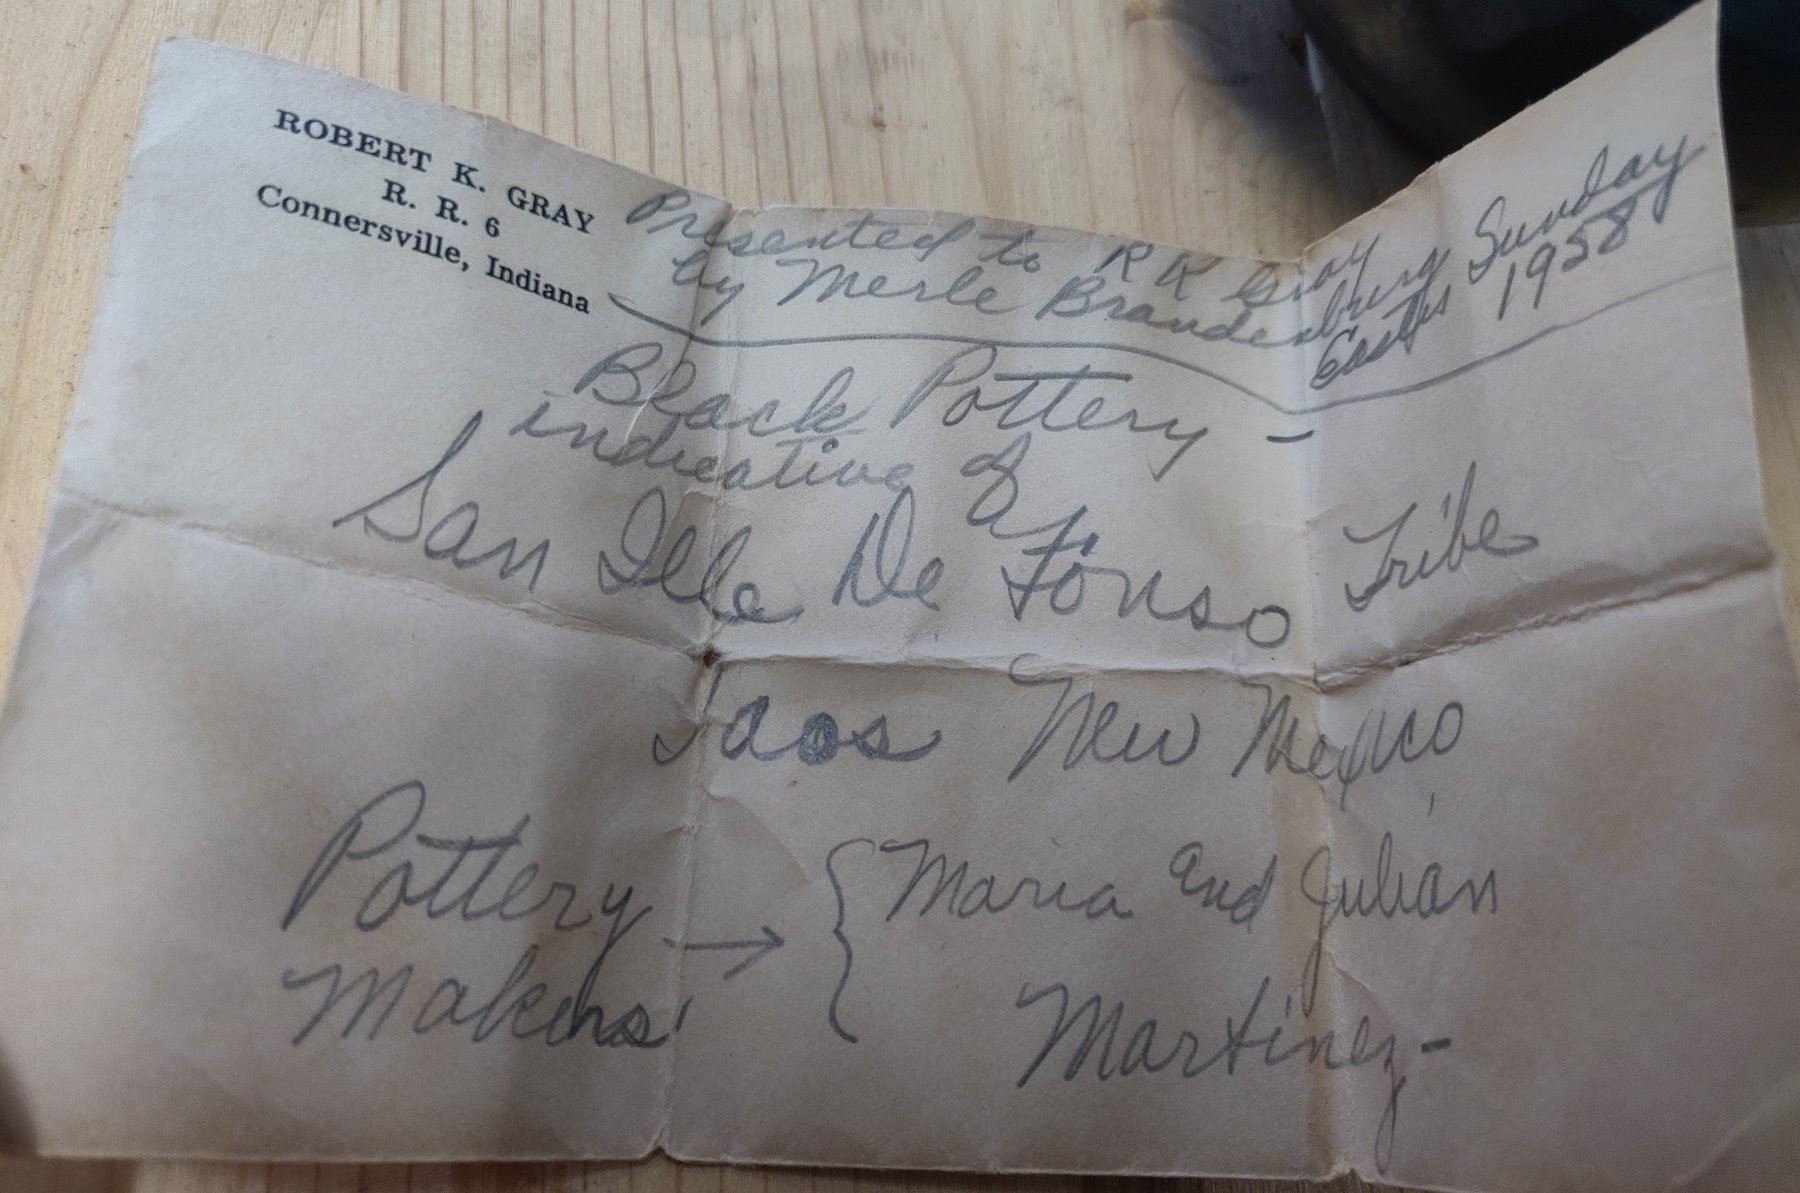 ROBERT K. GRAY
R. R. 6
Connersville, Indiana
Presented to R K Gray
by Merle Brandenburg
Easter Sunday
1958
Black Pottery -
indicative of
San Ille De Fonso Tribe
Taos New Mexico
Pottery Makers → { Maria and Julian
Martinez -